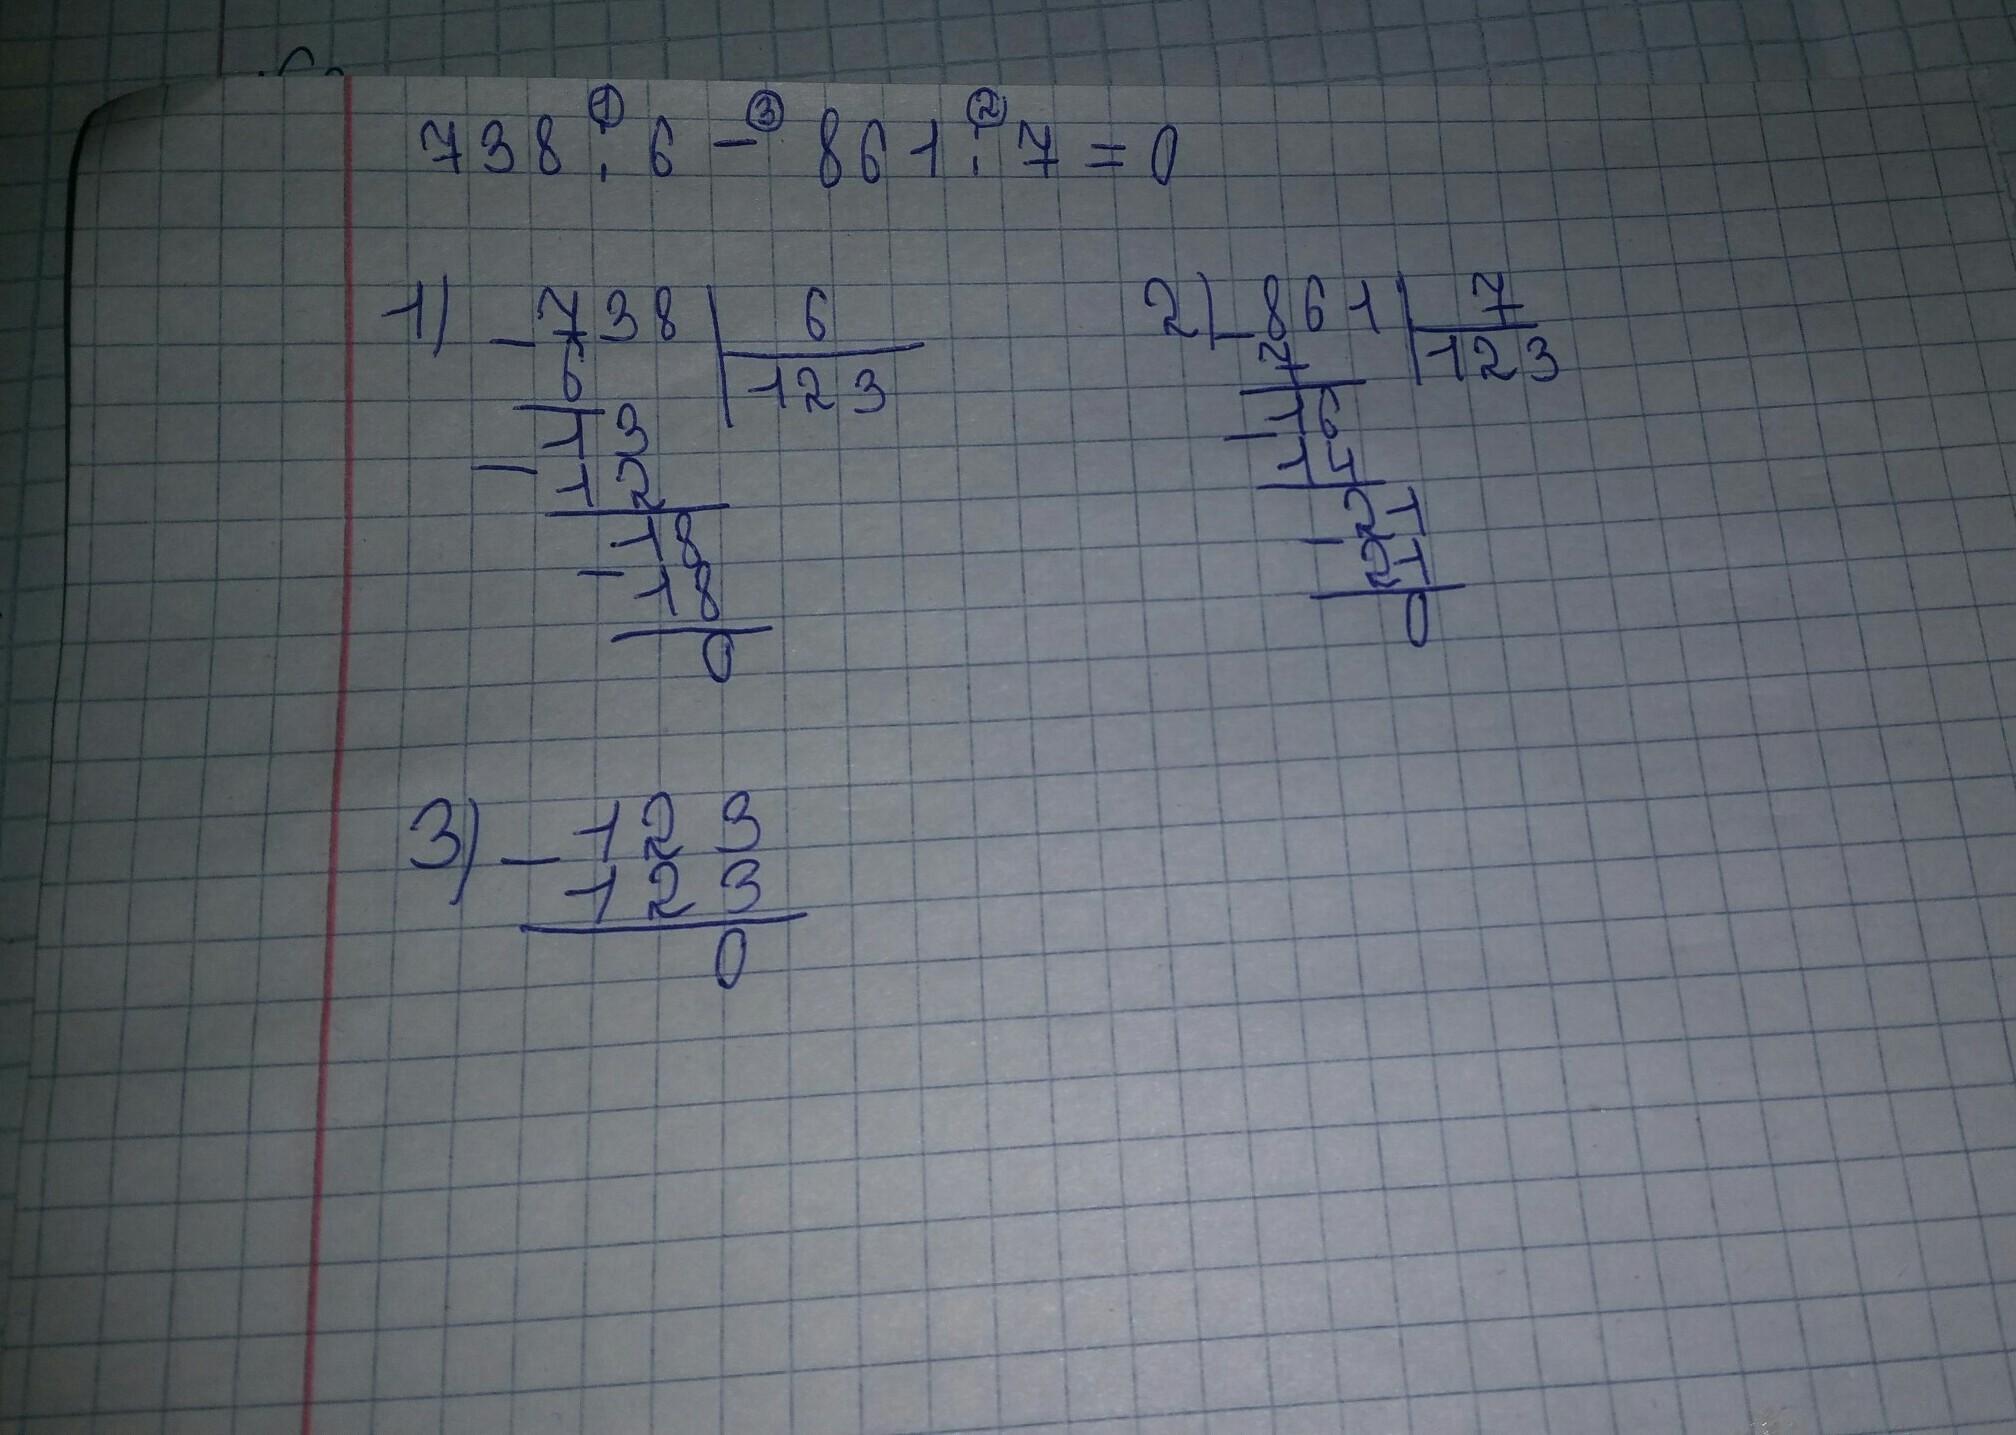 ① ③ ②
738 : 6 - 861 : 7 = 0
1) - 738 | 6
6 123
13
- 12
18
- 18
0
2) - 861 | 7
7 123
16
- 14
21
- 21
0
3) - 123
123
0